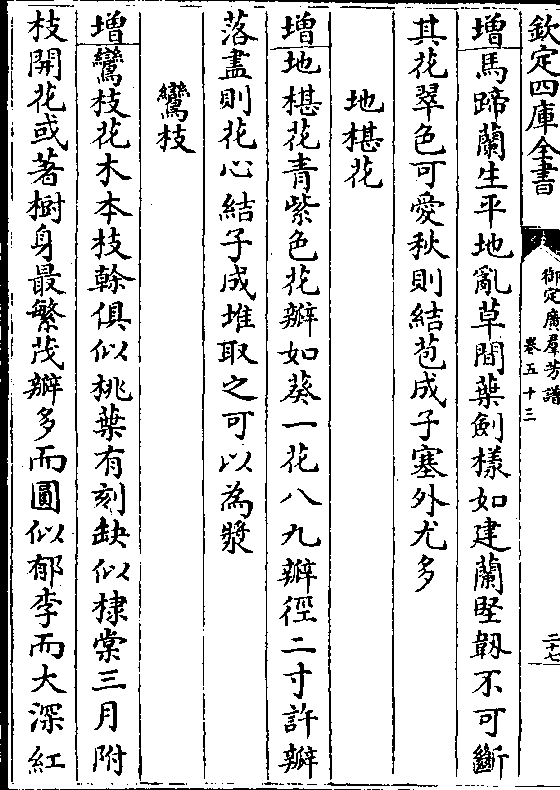 欽定四庫全書
御定廣羣芳譜
卷五十三
二十七
增馬蹄蘭生平地亂草間葉劍樣如建蘭堅韌不可斷
其花翠色可愛秋則結苞成子塞外尤多
地椹花
增地椹花青紫色花瓣如葵一花八九瓣徑二寸許瓣
落盡則花心結子成堆取之可以為漿
鸞枝
增鸞枝花木本枝榦俱似桃葉有刻缺似棣棠三月附
枝開花或著樹身最繁茂瓣多而圓似郁李而大深紅